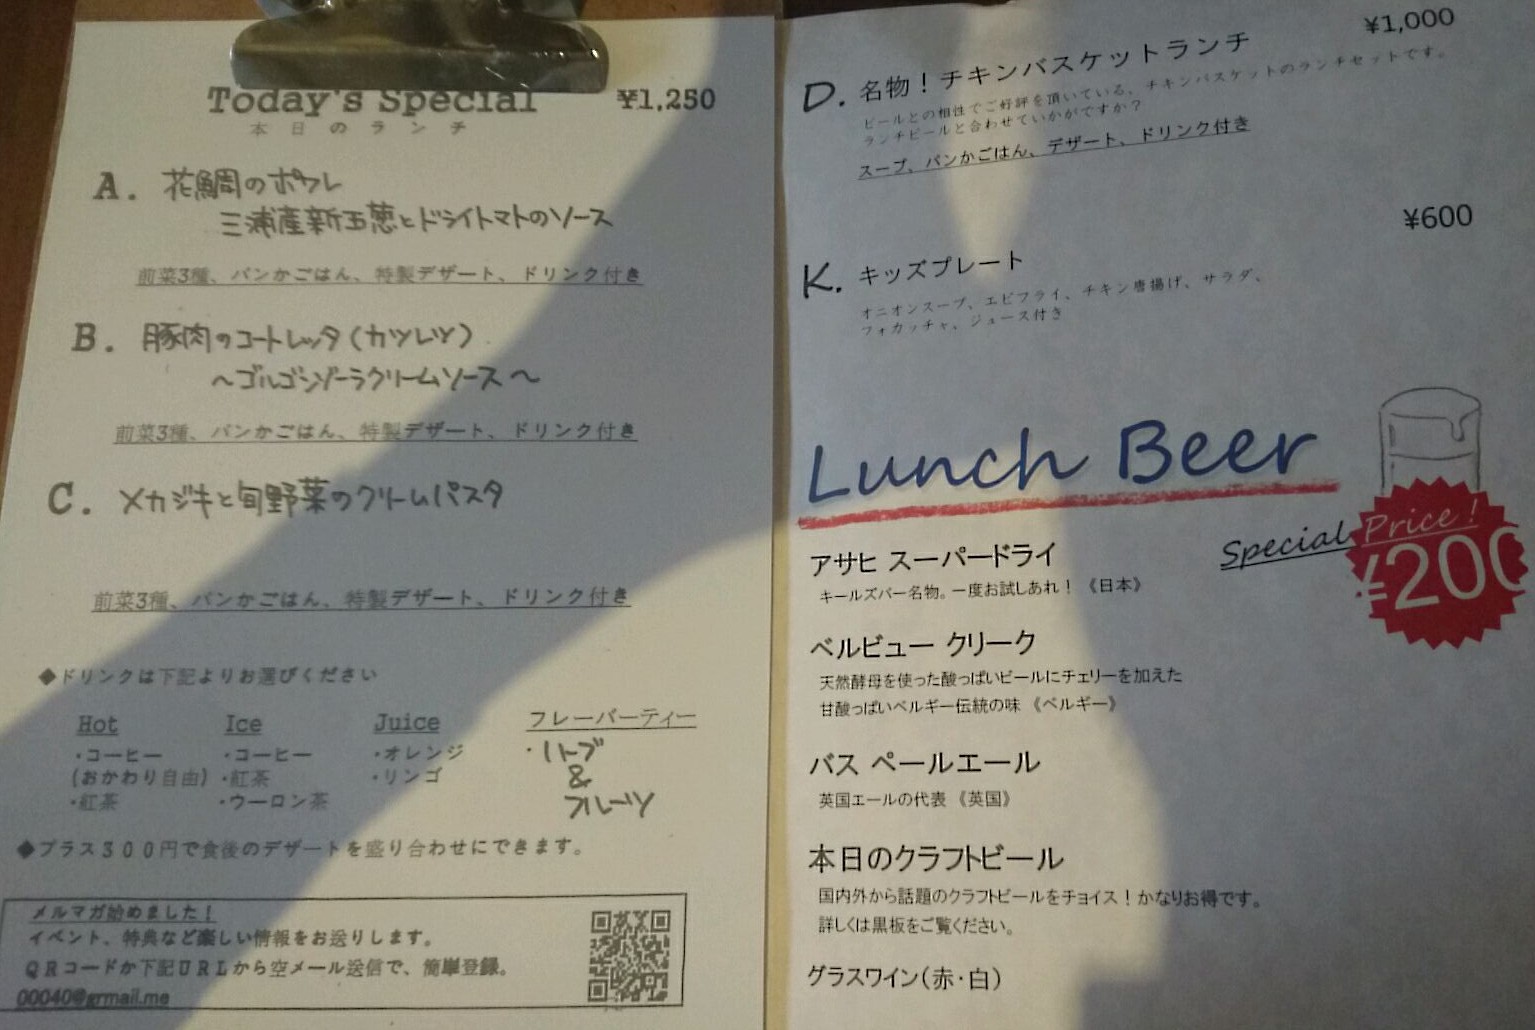 Today's Special ¥1,250
本日のランチ
A. 花鯛のポワレ
三浦産新玉葱とドライトマトのソース
前菜3種、パンかごはん、特製デザート、ドリンク付き
B. 豚肉のコートレッタ(カツレツ)
～ゴルゴンゾーラクリームソース～
前菜3種、パンかごはん、特製デザート、ドリンク付き
C. メカジキと旬野菜のクリームパスタ
前菜3種、パンかごはん、特製デザート、ドリンク付き
◆ドリンクは下記よりお選びください
Hot Ice Juice フレーバーティー
・コーヒー ・コーヒー ・オレンジ ・ハーブ
(おかわり自由) ・紅茶 ・リンゴ &
・紅茶 ・ウーロン茶 フルーツ
◆プラス300円で食後のデザートを盛り合わせにできます。
メルマガ始めました！
イベント、特典など楽しい情報をお送りします。
QRコードか下記URLから空メール送信で、簡単登録。
00040@grmail.me
¥1,000
D. 名物！チキンバスケットランチ
ビールとの相性でご好評を頂いている、チキンバスケットのランチセットです。
ランチビールと合わせていかがですか？
スープ、パンかごはん、デザート、ドリンク付き
¥600
K. キッズプレート
オニオンスープ、エビフライ、チキン唐揚げ、サラダ、
フォカッチャ、ジュース付き
Lunch Beer
Special Price!
¥200
アサヒ スーパードライ
キールズバー名物。一度お試しあれ！《日本》
ベルビュー クリーク
天然酵母を使った酸っぱいビールにチェリーを加えた
甘酸っぱいベルギー伝統の味《ベルギー》
バス ペールエール
英国エールの代表《英国》
本日のクラフトビール
国内外から話題のクラフトビールをチョイス！かなりお得です。
詳しくは黒板をご覧ください。
グラスワイン(赤・白)